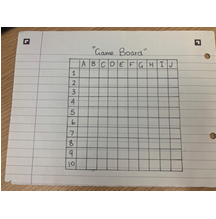 "Game Board"
A B C D E F G H I J
1
2
3
4
5
6
7
8
9
10